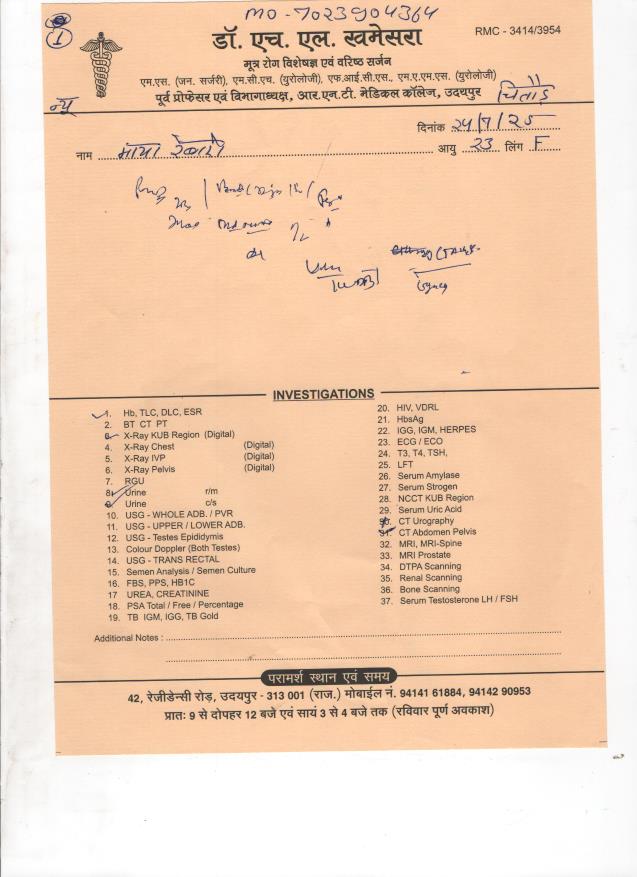 MO - 7023904364
1
डॉ. एच. एल. खमेसरा
RMC - 3414/3954
मूत्र रोग विशेषज्ञ एवं वरिष्ठ सर्जन
एम.एस. (जन. सर्जरी), एम.सी.एच. (युरोलोजी), एफ.आई.सी.एस., एम.ए.एम.एस. (युरोलोजी)
पूर्व प्रोफेसर एवं विभागाध्यक्ष, आर.एन.टी. मेडिकल कॉलेज, उदयपुर
न्यू
चित्तौड़
दिनांक 24/7/25
नाम माया आयु 23 लिंग F
INVESTIGATIONS
1. Hb, TLC, DLC, ESR
2. BT CT PT
X-Ray KUB Region (Digital)
4. X-Ray Chest (Digital)
5. X-Ray IVP (Digital)
6. X-Ray Pelvis (Digital)
7. RGU
8. Urine r/m
9. Urine c/s
10. USG - WHOLE ADB. / PVR
11. USG - UPPER / LOWER ADB.
12. USG - Testes Epididymis
13. Colour Doppler (Both Testes)
14. USG - TRANS RECTAL
15. Semen Analysis / Semen Culture
16. FBS, PPS, HB1C
17 UREA, CREATININE
18. PSA Total / Free / Percentage
19. TB IGM, IGG, TB Gold
20. HIV, VDRL
21. HbsAg
22. IGG, IGM, HERPES
23. ECG / ECO
24. T3, T4, TSH,
25. LFT
26. Serum Amylase
27. Serum Strogen
28. NCCT KUB Region
29. Serum Uric Acid
30. CT Urography
31. CT Abdomen Pelvis
32. MRI, MRI-Spine
33. MRI Prostate
34. DTPA Scanning
35. Renal Scanning
36. Bone Scanning
37. Serum Testosterone LH / FSH
Additional Notes :
परामर्श स्थान एवं समय
42, रेजीडेन्सी रोड़, उदयपुर - 313 001 (राज.) मोबाईल नं. 94141 61884, 94142 90953
प्रातः 9 से दोपहर 12 बजे एवं सायं 3 से 4 बजे तक (रविवार पूर्ण अवकाश)